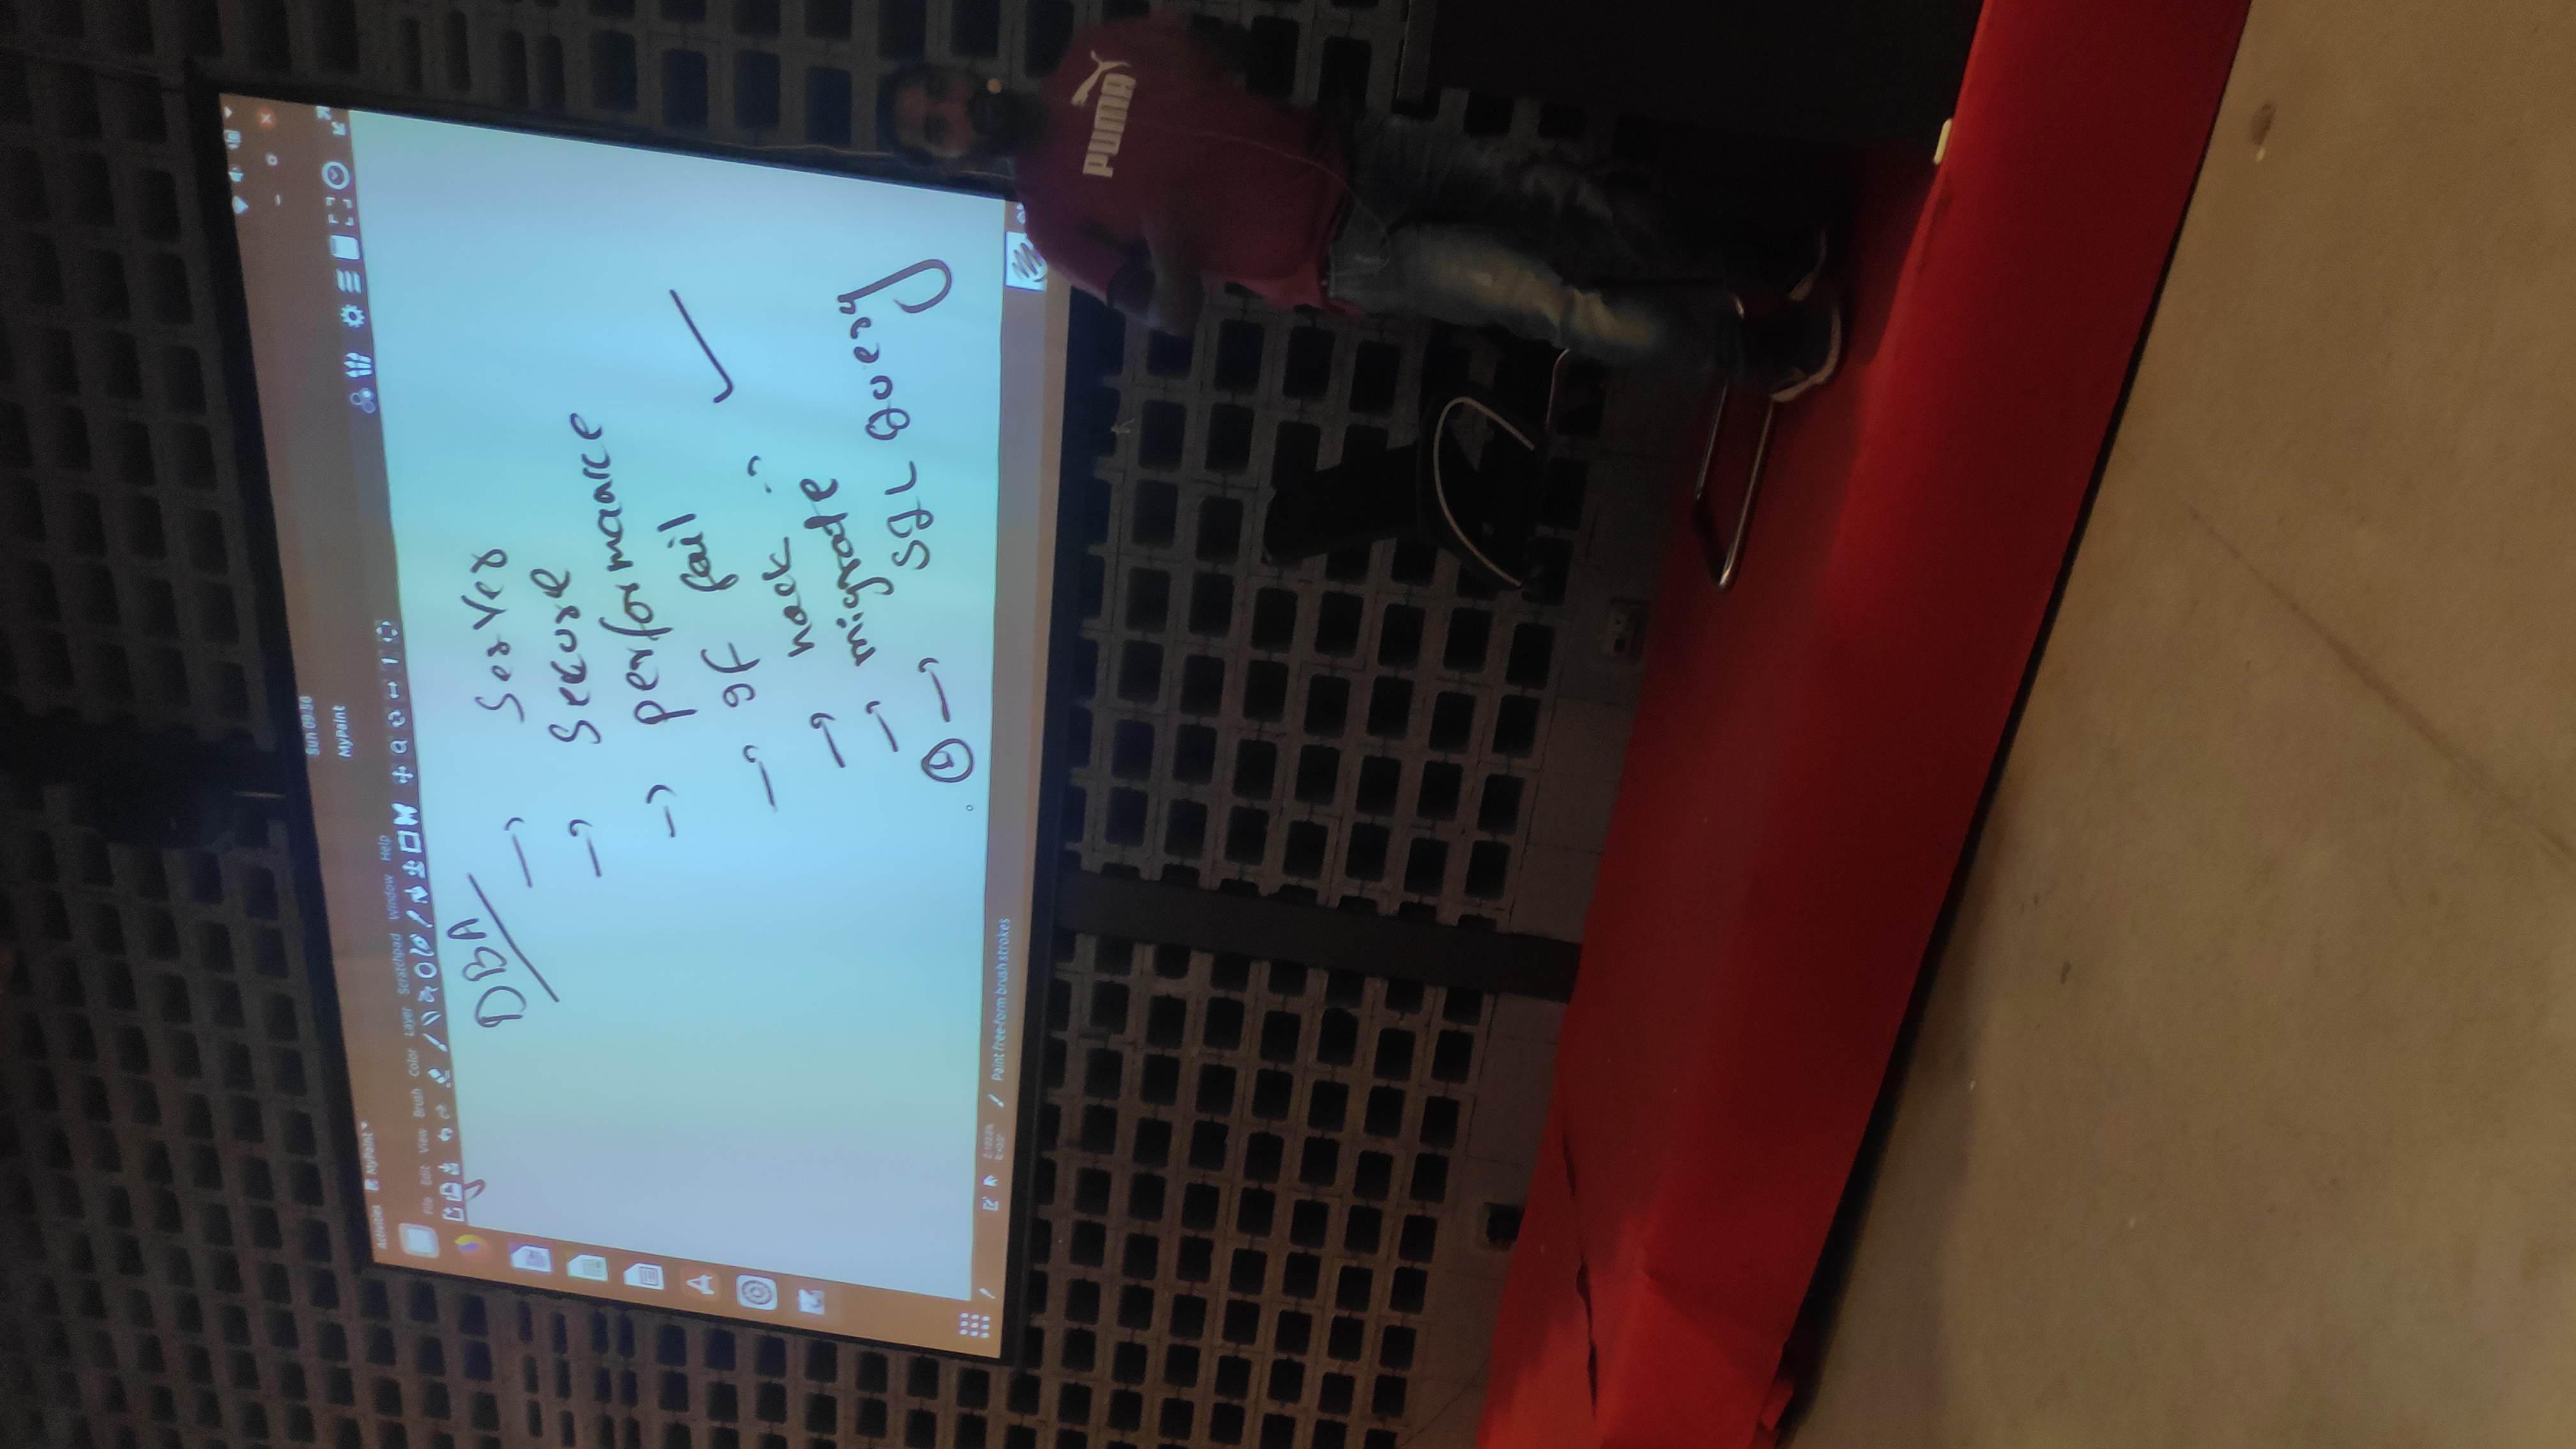 Sun 09:56
Activities MyPaint
MyPaint
File Edit View Brush Color Layer Scratchpad Window Help
DBA
→ Server
→ Secure
→ performance
→ If fail
→ hack →
→ migrate
→ SQL Query
Paint free-form brush strokes
PUMA